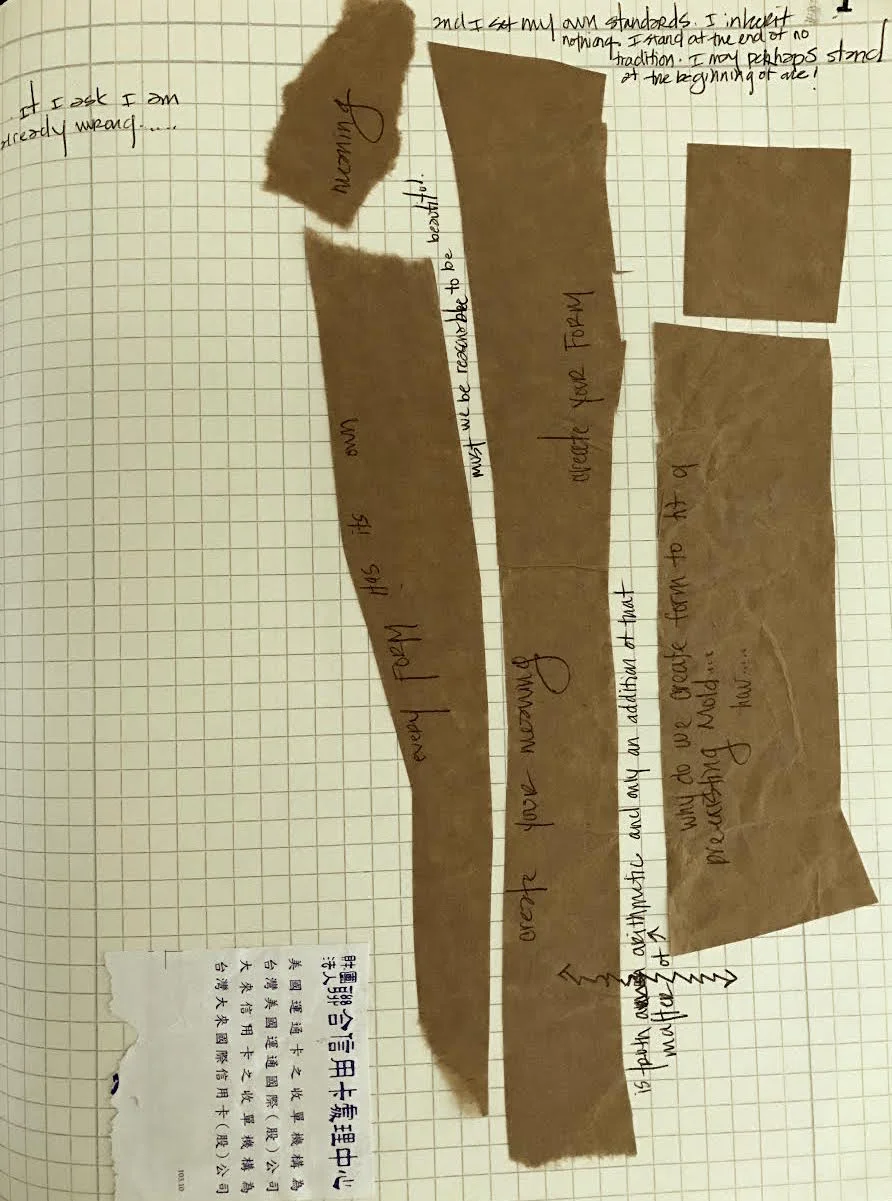 1
and I set my own standards. I inherit
nothing. I stand at the end of no
tradition. I may perhaps stand
at the beginning of one!
If I ask I am
already wrong.....
meaning
must we be reasonable to be beautiful.
every FORM has its own
create your FORM
create your meaning
is truth arithmetic and only an addition of that
matter of
why do we create form to fit a
preexisting mold...
how....
財團
法人聯合信用卡處理中心
美國運通卡之收單機構為
台灣美國運通國際(股)公司
大來信用卡之收單機構為
台灣大來國際信用卡(股)公司
103.10